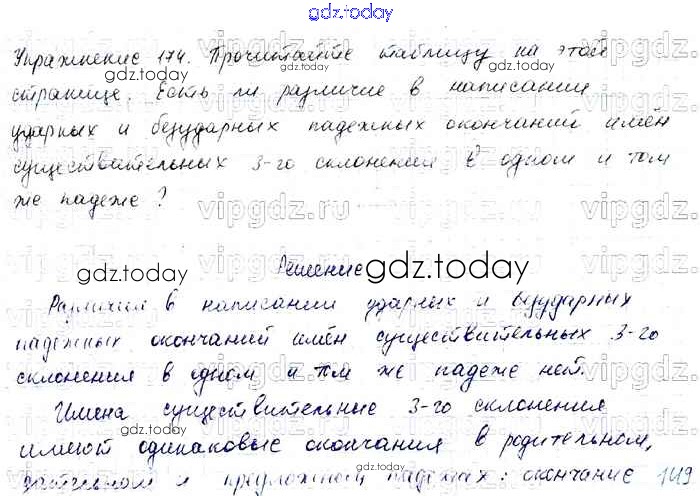 gdz.today
Упражнение 174. Прочитайте таблицу на этой
странице. Есть ли различие в написании
ударных и безударных падежных окончаний имён
существительных 3-го склонения в одном и том
же падеже?
Решение
Различия в написании ударных и безударных
падежных окончаний имён существительных 3-го
склонения в одном и том же падеже нет.
Имена существительные 3-го склонения
имеют одинаковые окончания в родительном,
дательном и предложном падежах: окончание
149